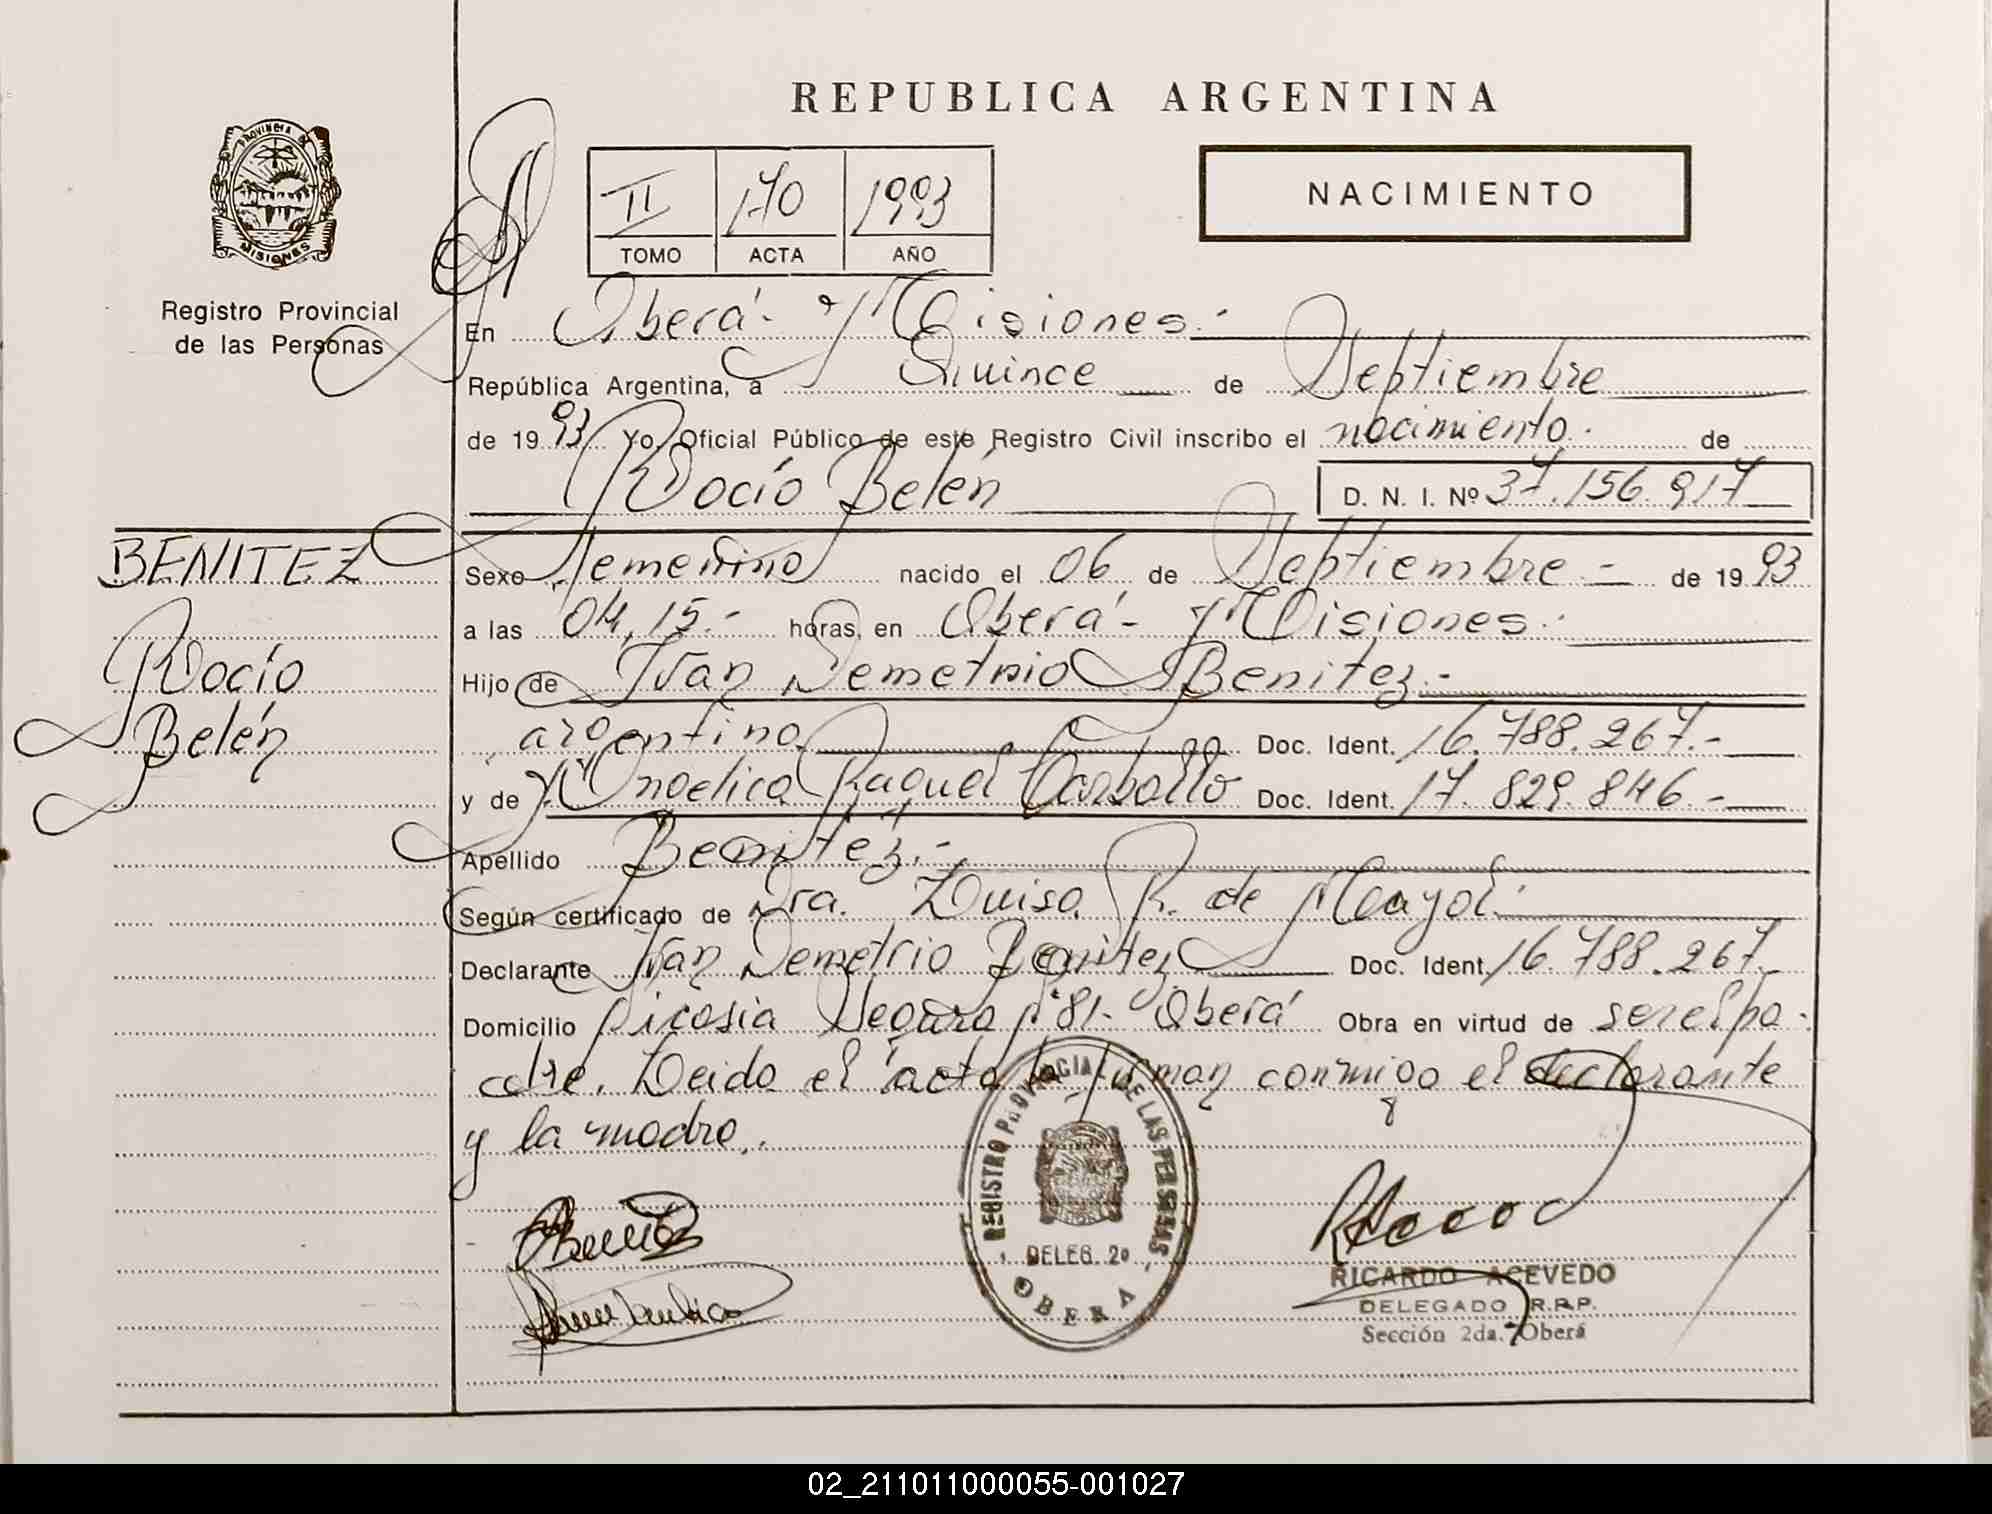 REPUBLICA ARGENTINA
PROVINCIA DE
MISIONES
Registro Provincial
de las Personas
II 170 1993
TOMO ACTA AÑO
NACIMIENTO
En Oberá - Misiones.-
República Argentina, a Quince de Septiembre
de 1993 Yo, Oficial Público de este Registro Civil inscribo el nacimiento. de
Rocío Belén D. N. I. Nº 37.156.917
BENITEZ
Rocío
Belén
Sexo Femenino nacido el 06 de Septiembre - de 1993
a las 04,15.- horas, en Oberá - Misiones.
Hijo de Iván Demetrio Benitez.-
argentino Doc. Ident. 16.788.267.-
y de Angelica Raquel Carballo Doc. Ident. 17.829.846.-
Apellido Benitez.-
Según certificado de Dra. Luisa R. de
Declarante Iván Demetrio Benitez Doc. Ident. 16.788.267.
Domicilio Seguro Nº 81- Oberá Obra en virtud de ser el pa-
dre. Leida el acta la firman conmigo el declarante
y la madre.
REGISTRO PROVINCIAL DE LAS PERSONAS
DELEG. 2º
OBERA
RICARDO ACEVEDO
DELEGADO R.P.P.
Sección 2da. Oberá
02_211011000055-001027